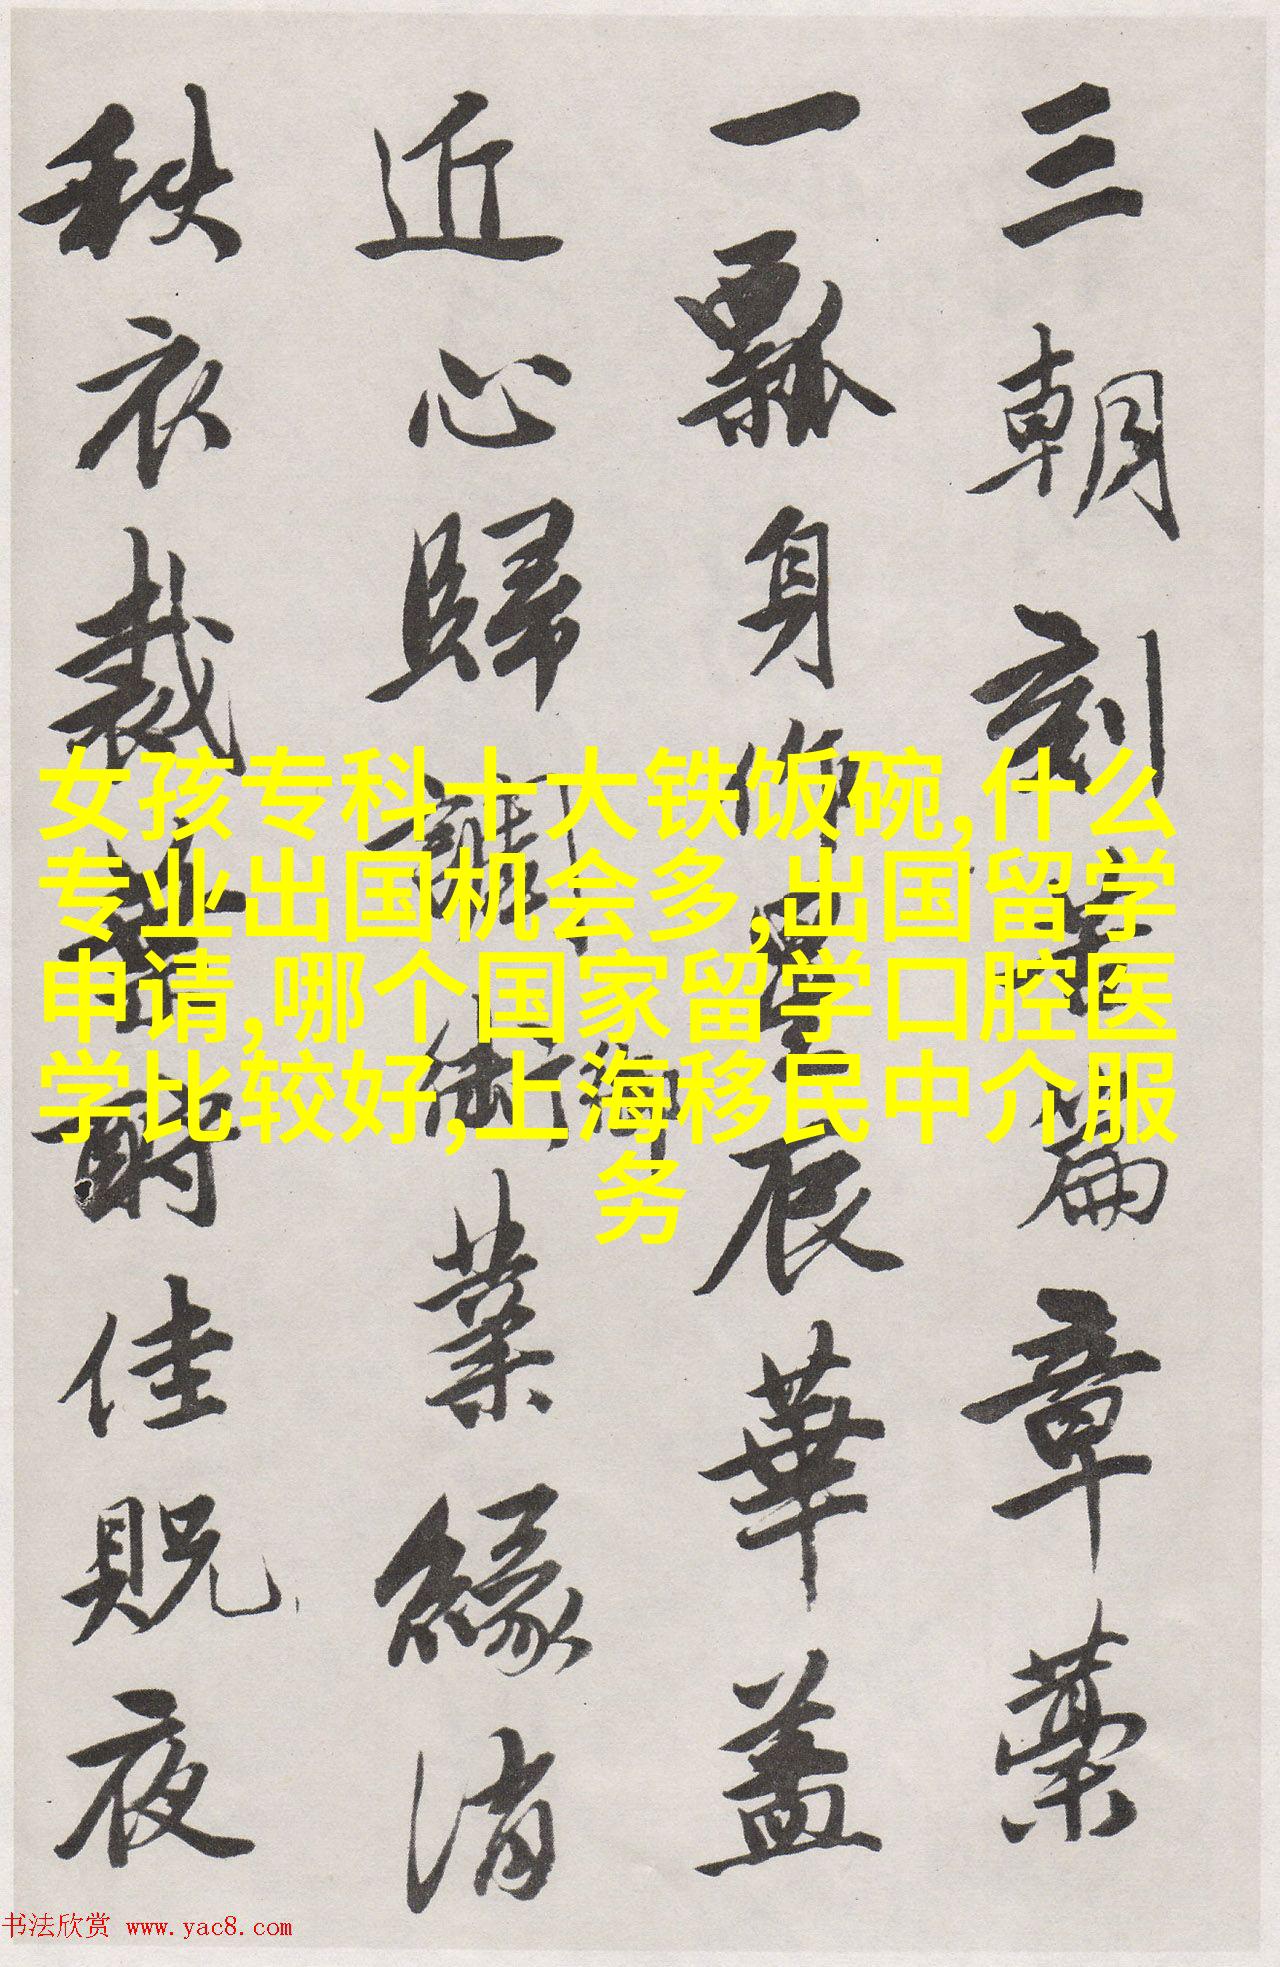 三朝刻篇章藁
一瓢身辰華蓋
近心歸業緣消
秩衣裁酬佳貺夜
女孩专科十大铁饭碗,什么
专业出国机会多,出国留学
申请,哪个国家留学口腔医
学比较好,上海移民中介服
务
书法欣赏 www.yac8.com